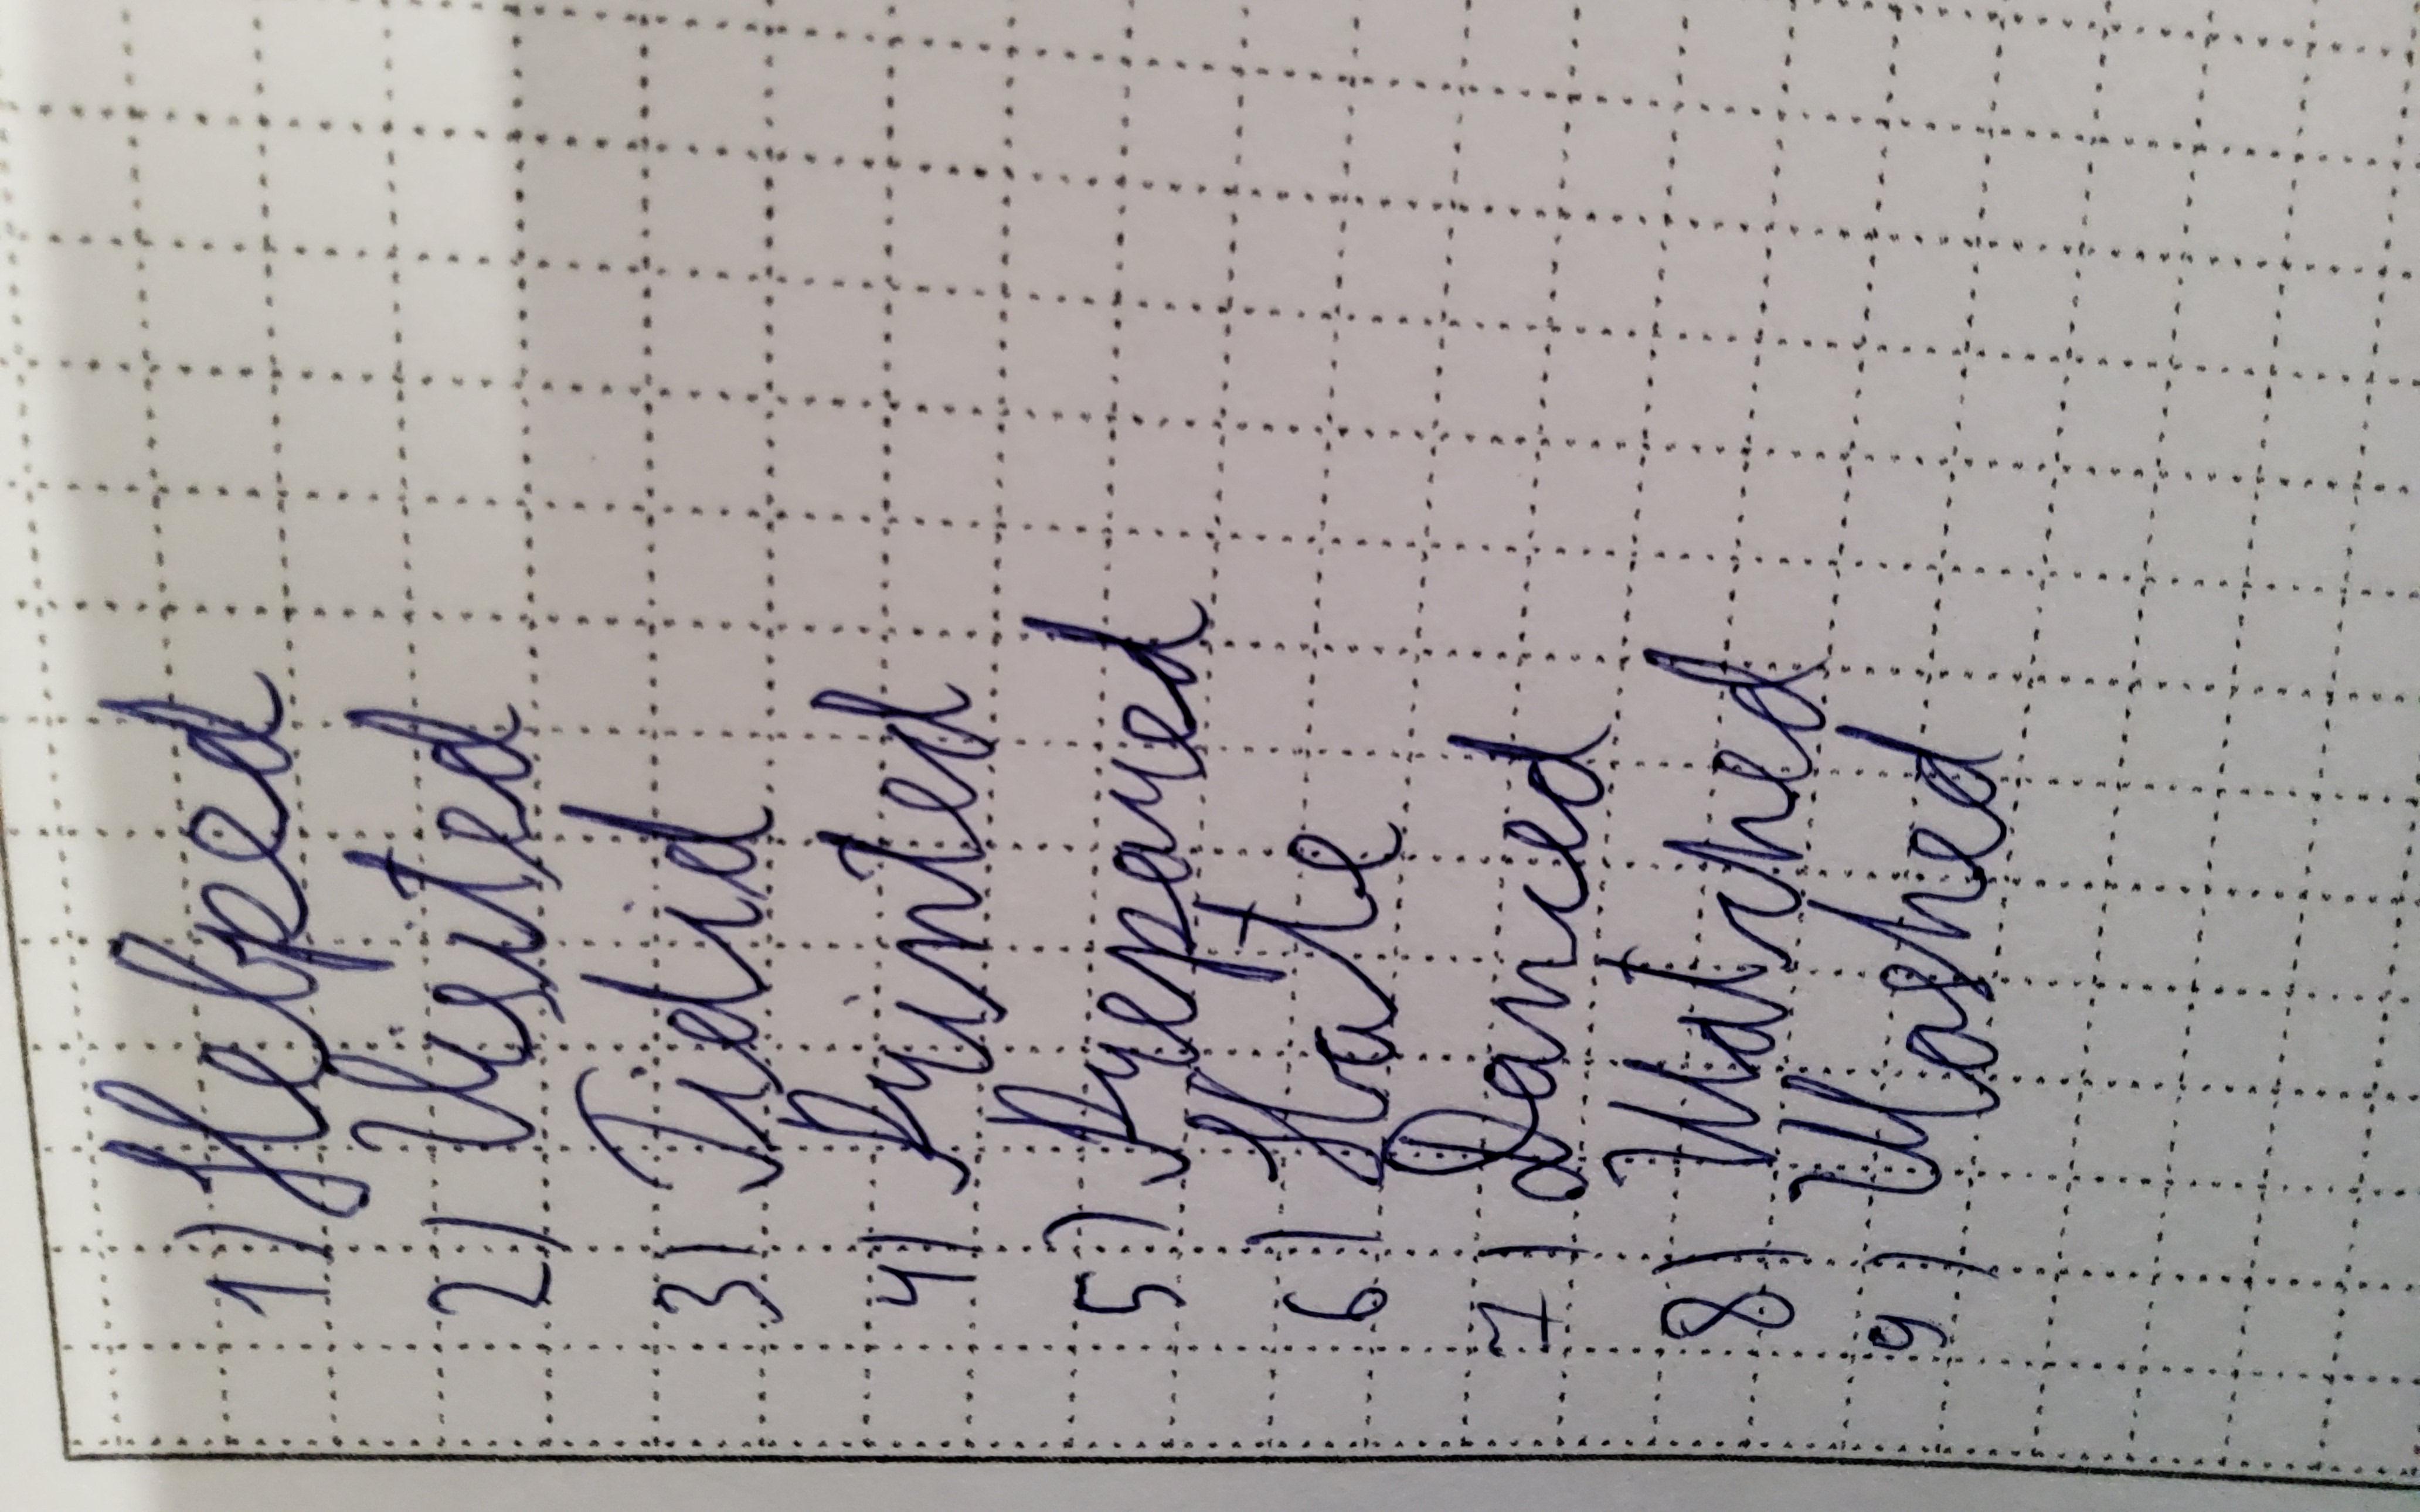 1) Helped
2) Visited
3) Tidied
4) Printed
5) Prepared
6)
7) Danced
8) Watched
9) Washed